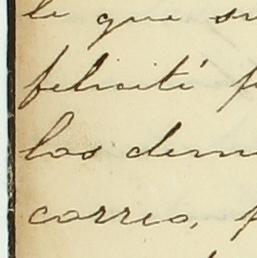 le que su
felicité p
los dem
correo, p